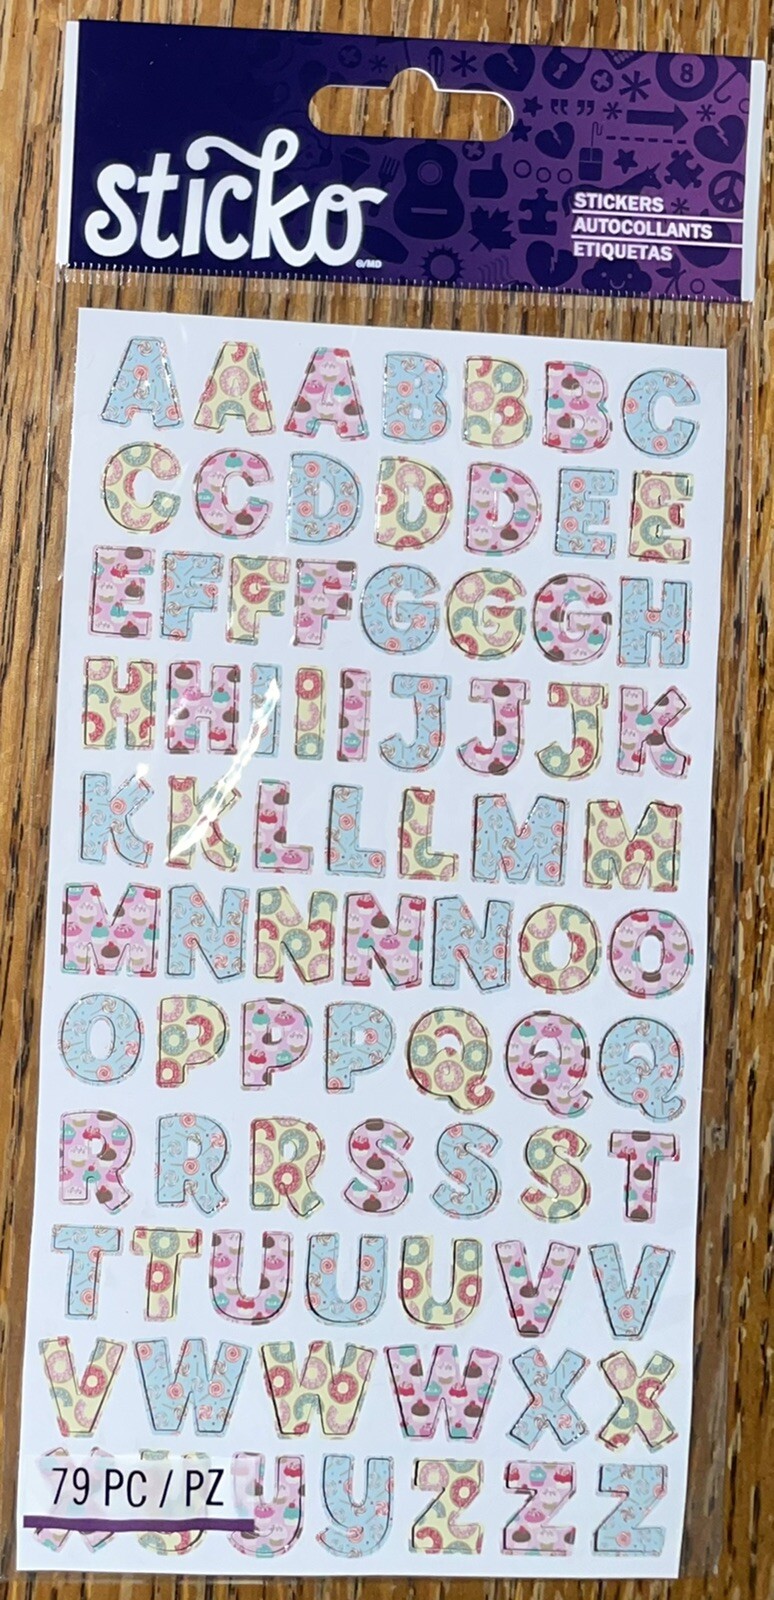 8
sticko
®/MD
STICKERS
AUTOCOLLANTS
ETIQUETAS
A A A B B B C
C C D D D E E
E F F F G G G H
H H I I I J J J K
K K L L L M M
M N N N N O O
O P P P Q Q Q
R R R S S S T
T T U U U V V
V W W W X X
79 PC / PZ
Y Y Z Z Z